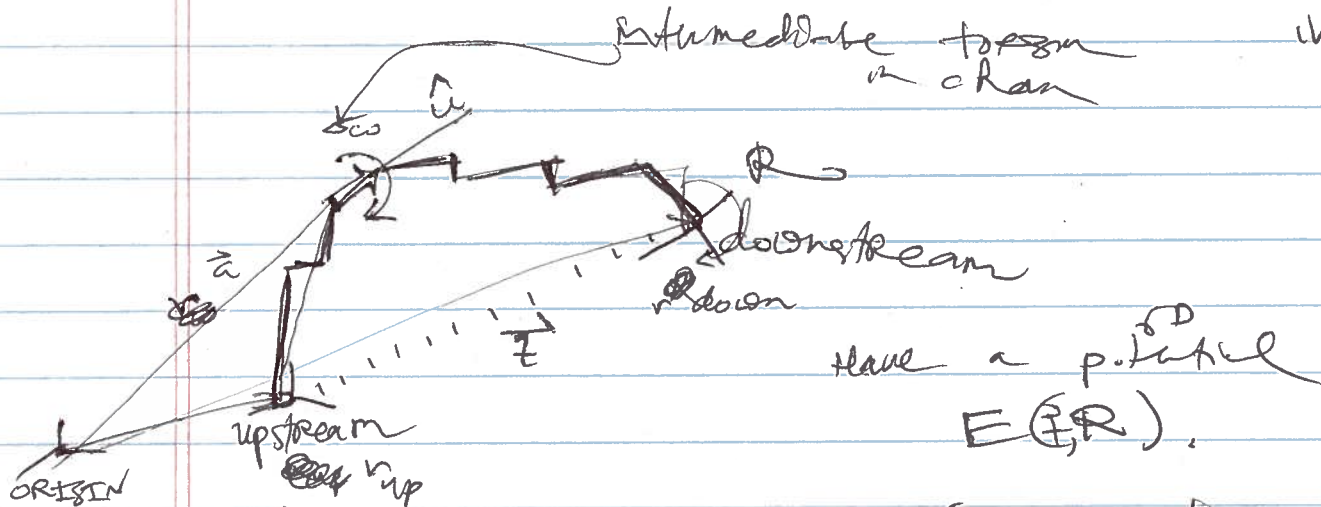 intermediate torsion
in chain
Δω
û
R
a⃗
downstream
r down
t
6D
Have a potential
E(t, R).
upstream
r up
ORIGIN